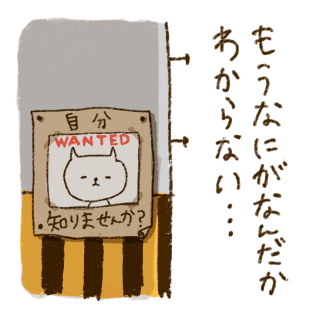 もうなにがなんだか
わからない・・・
自分
WANTED
知りませんか?